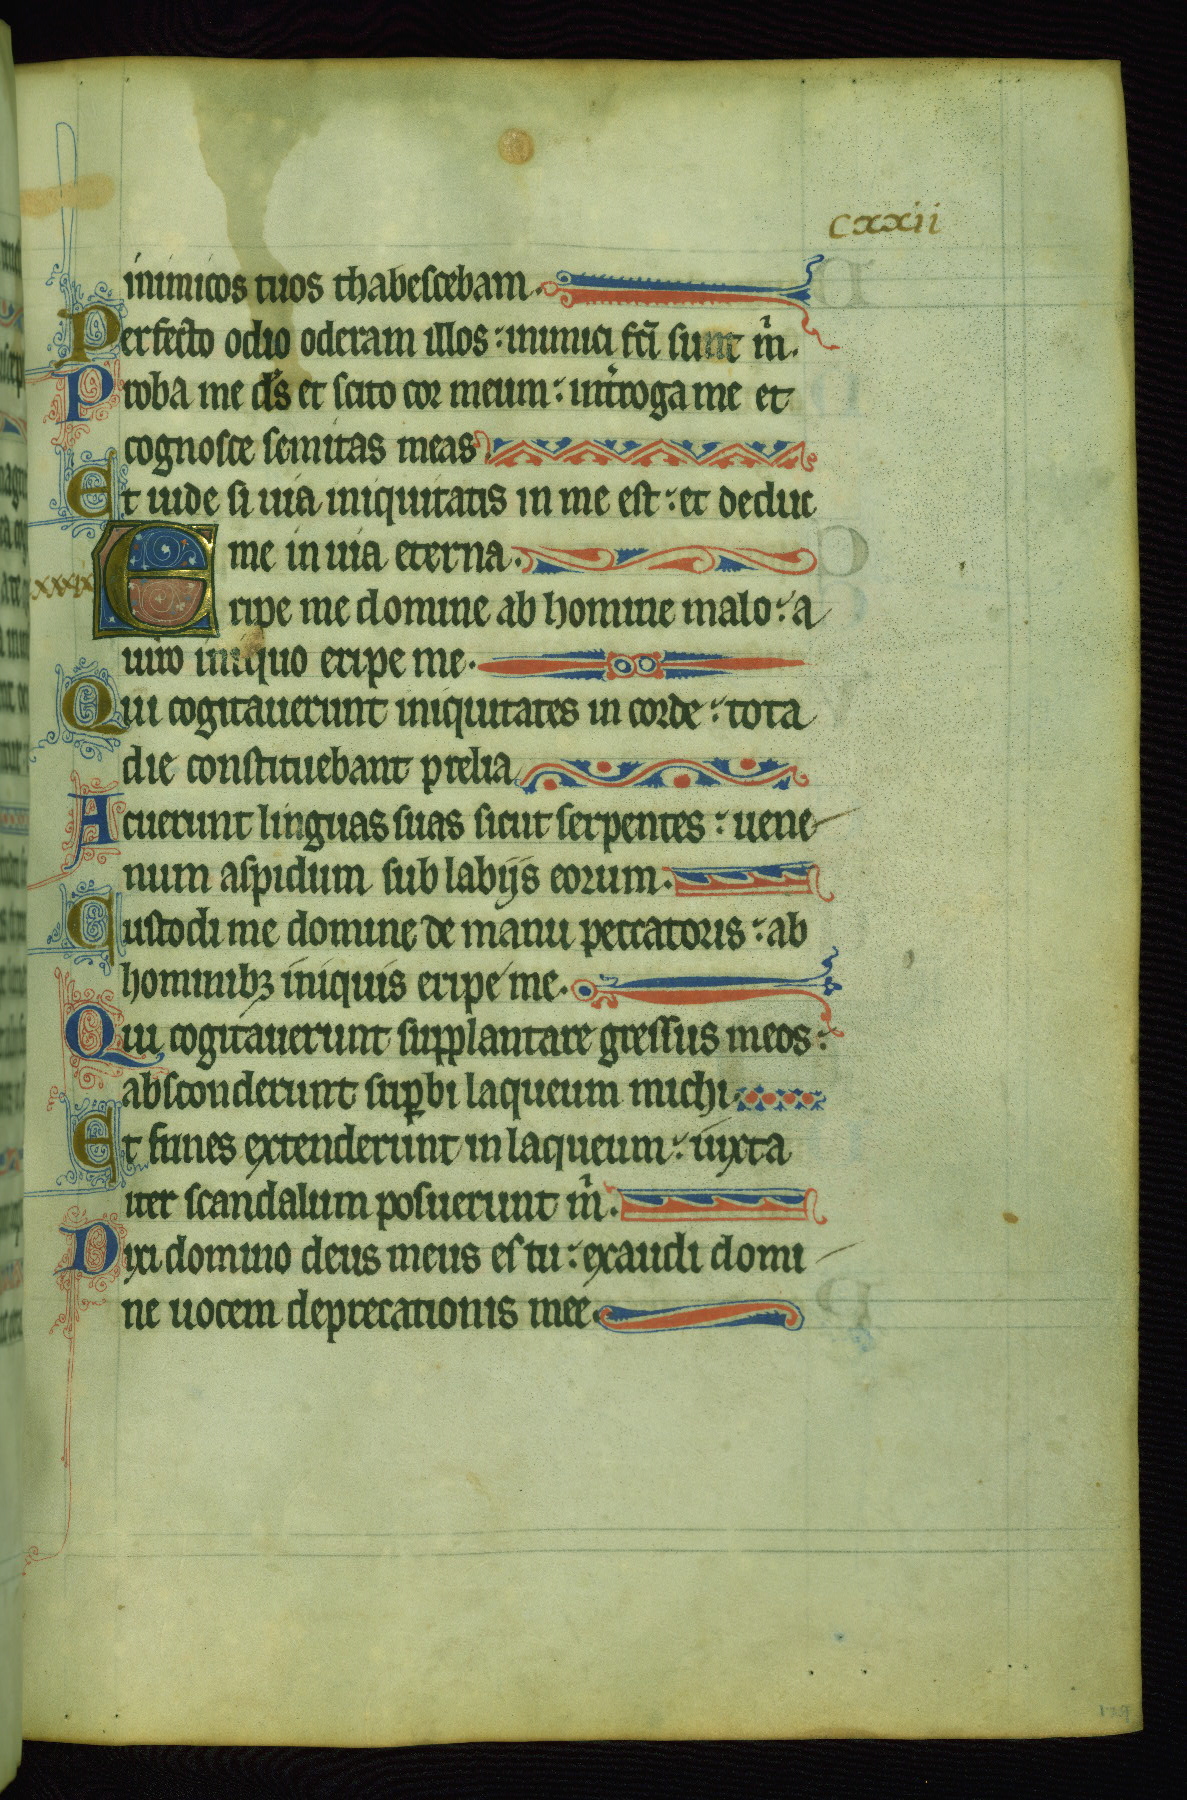 cxxii
inimicos tuos thabescebam.
Perfecto odio oderam illos: inimici fc̄i sunt m̄.
Proba me d̄s et scito cor meum: int̄roga me et
cognosce semitas meas
Et uide si uia iniquitatis in me est: et deduc
me in uia eterna.
xxxix
Eripe me domine ab homine malo: a
uiro iniquo eripe me.
Qui cogitauerunt iniquitates in corde: tota
die constituebant prelia
Acuerunt linguas suas sicut serpentes: uene
num aspidum sub labijs eorum.
Custodi me domine de manu peccatoris: ab
hominibꝫ iniquis eripe me.
Qui cogitauerunt supplantare gressus meos:
absconderunt suꝑbi laqueum michi
Et funes extenderunt in laqueum: iuxta
iter scandalum posuerunt m̄.
Dixi domino deus meus es tu: exaudi domi
ne uocem deprecationis mee